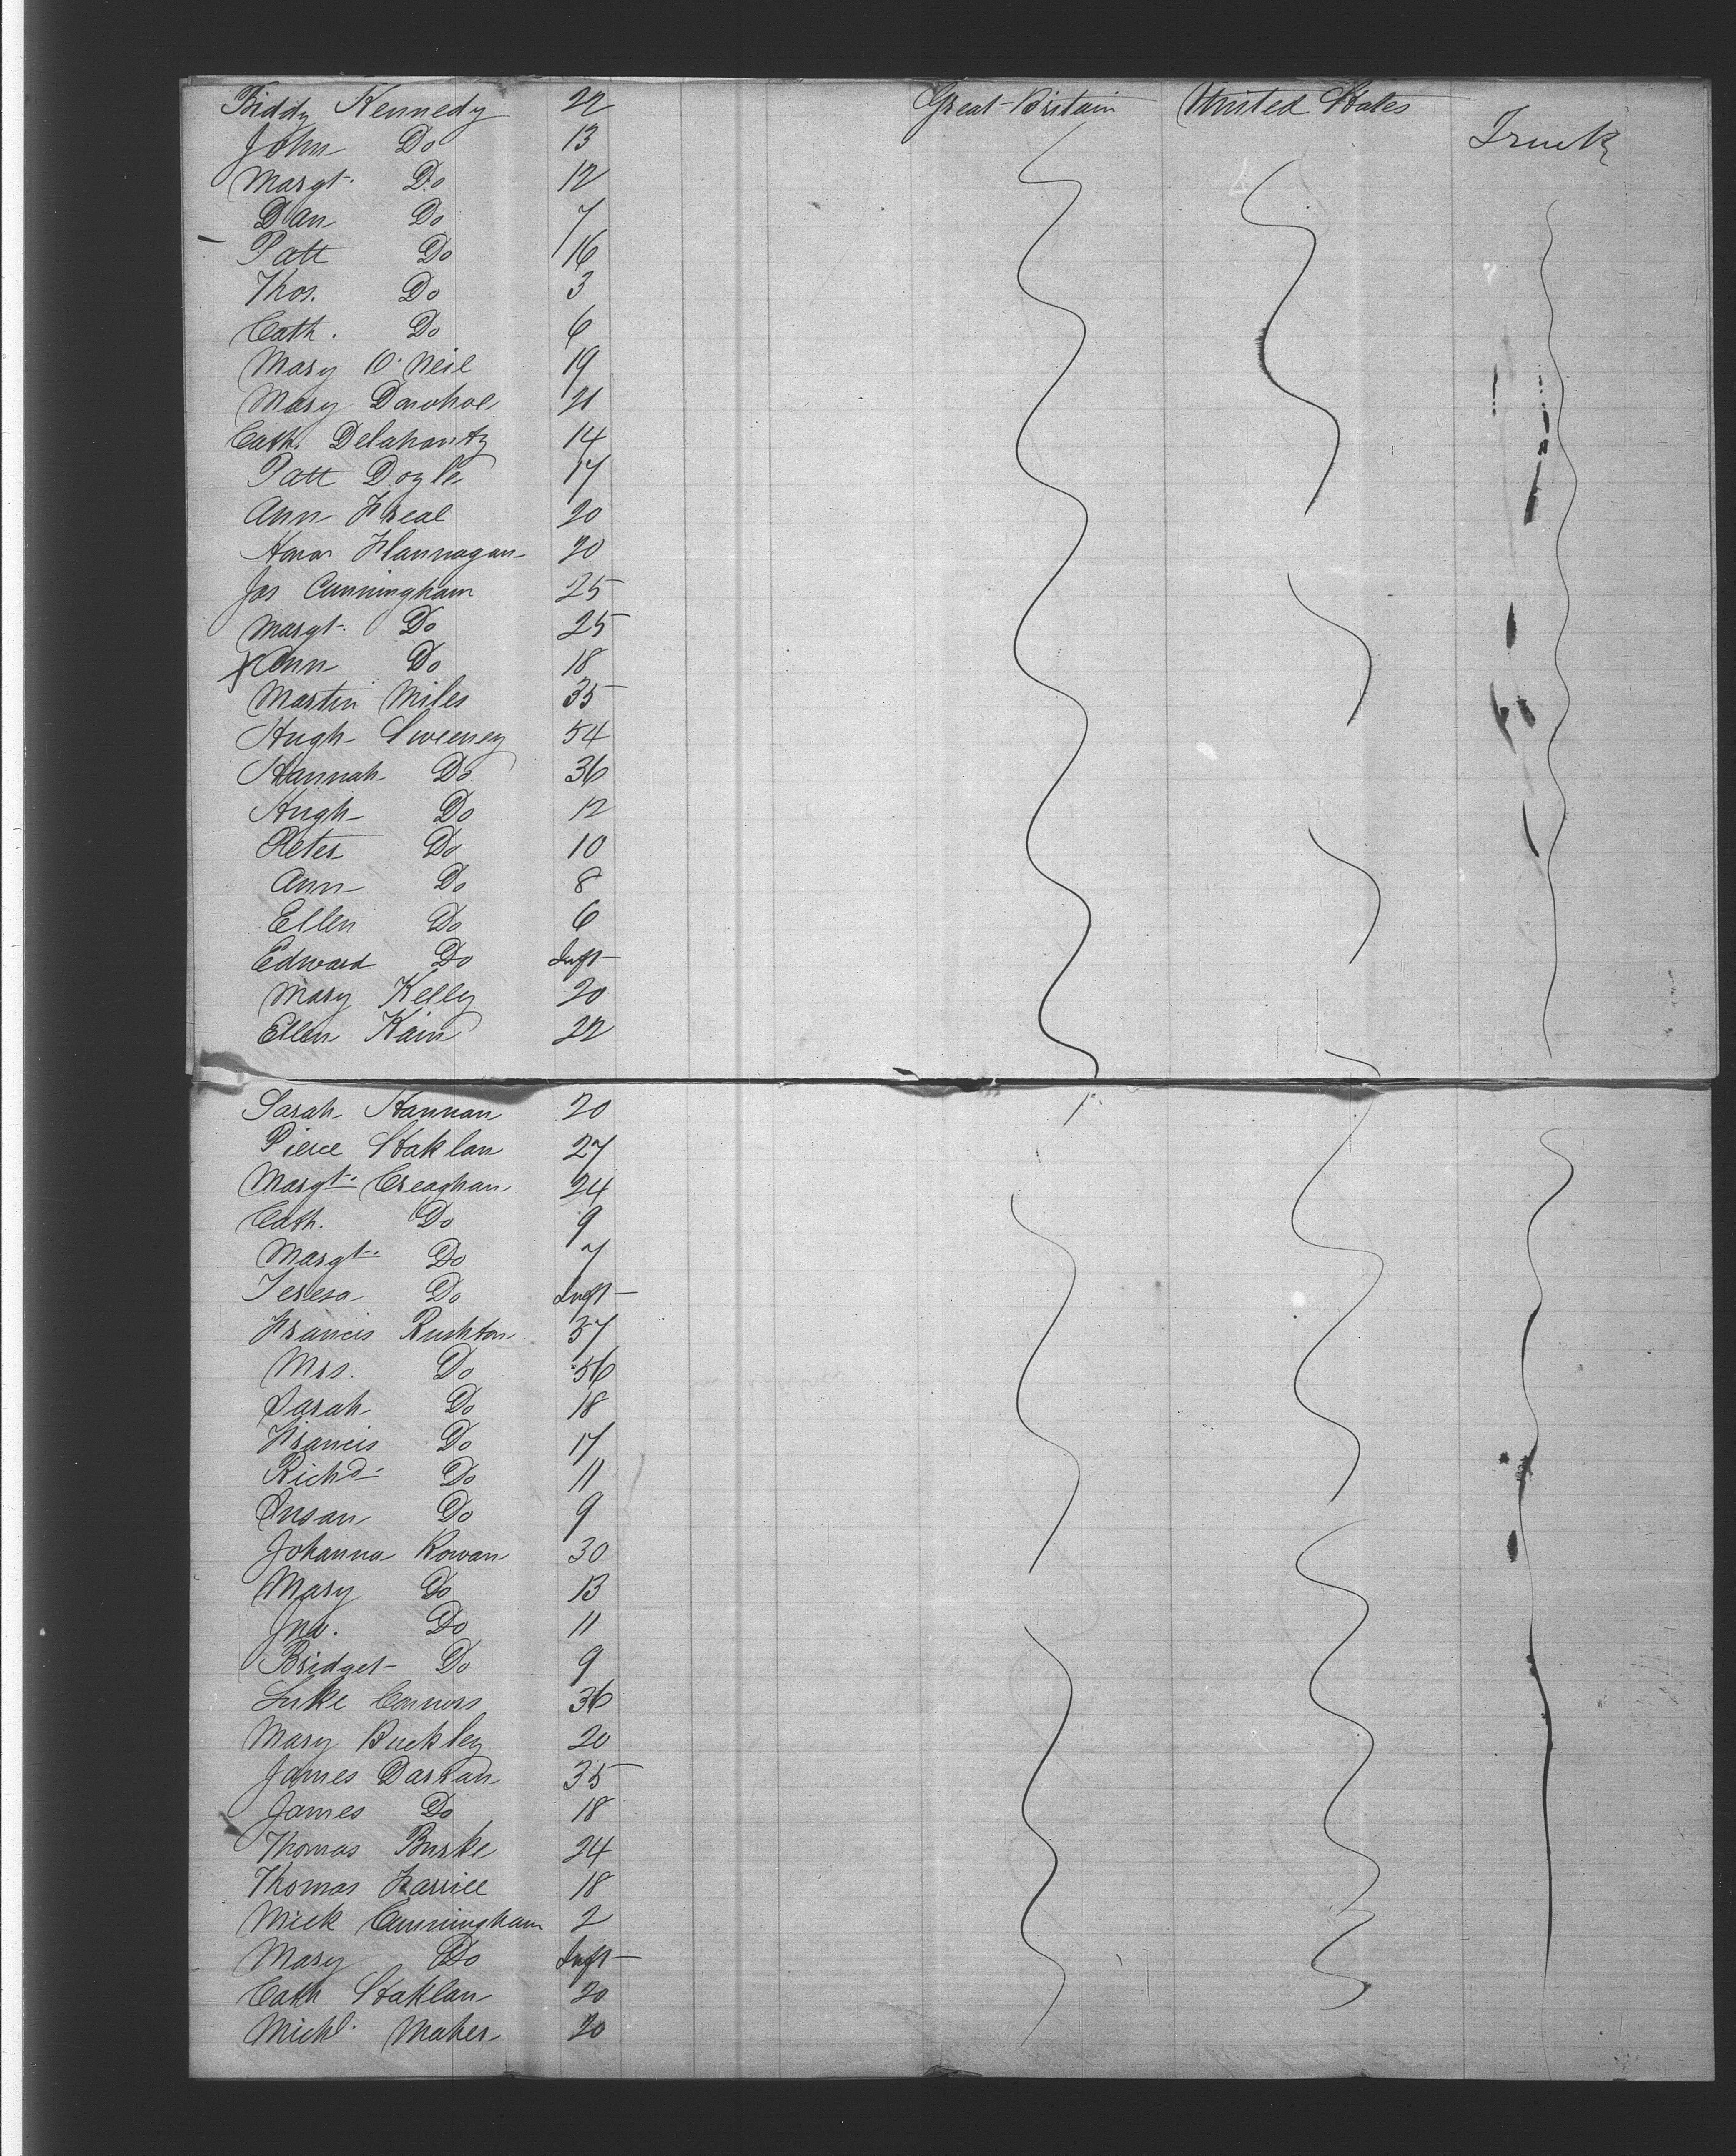 Biddy Kennedy 22 Great-Britain United States
John Do 13 Trunk
Margt. Do 12
Dan Do 7
Patt Do 16
Thos. Do 3
Cath. Do 6
Mary O'Neil 19
Mary Donohoe 21
Cath. Delahanty 14
Patt Doyle 17
Ann 20
Honor Flannagan 20
Jas Cunningham 25
Margt. Do 25
x Ann Do 18
Martin Miles 35
Hugh Sweeney 54
Hannah Do 36
Hugh Do 12
Peter Do 10
Ann Do 8
Ellen Do 6
Edward Do Inft
Mary Kelly 20
Ellen Kain 22
Sarah Hannan 20
Pierce Staklan 27
Margt. Creaghan 24
Cath. Do 9
Margt. Do 7
Teresa Do Inft
Francis Rushton 57
Mrs. Do 56
Sarah Do 18
Francis Do 17
Richd. Do 11
Susan Do 9
Johanna Rowan 30
Mary Do 13
Jno. Do 11
Bridget Do 9
Luke Connors 36
Mary Buckley 20
James 35
James Do 18
Thomas Burke 24
Thomas 18
Mick Cunningham 2
Mary Do Inft
Cath Staklan 20
Michl. Maher 20